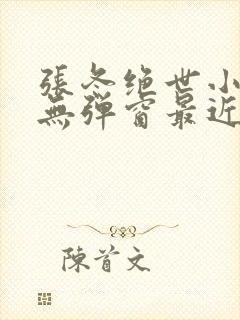 張冬绝世小
無彈窗最近
陳首文